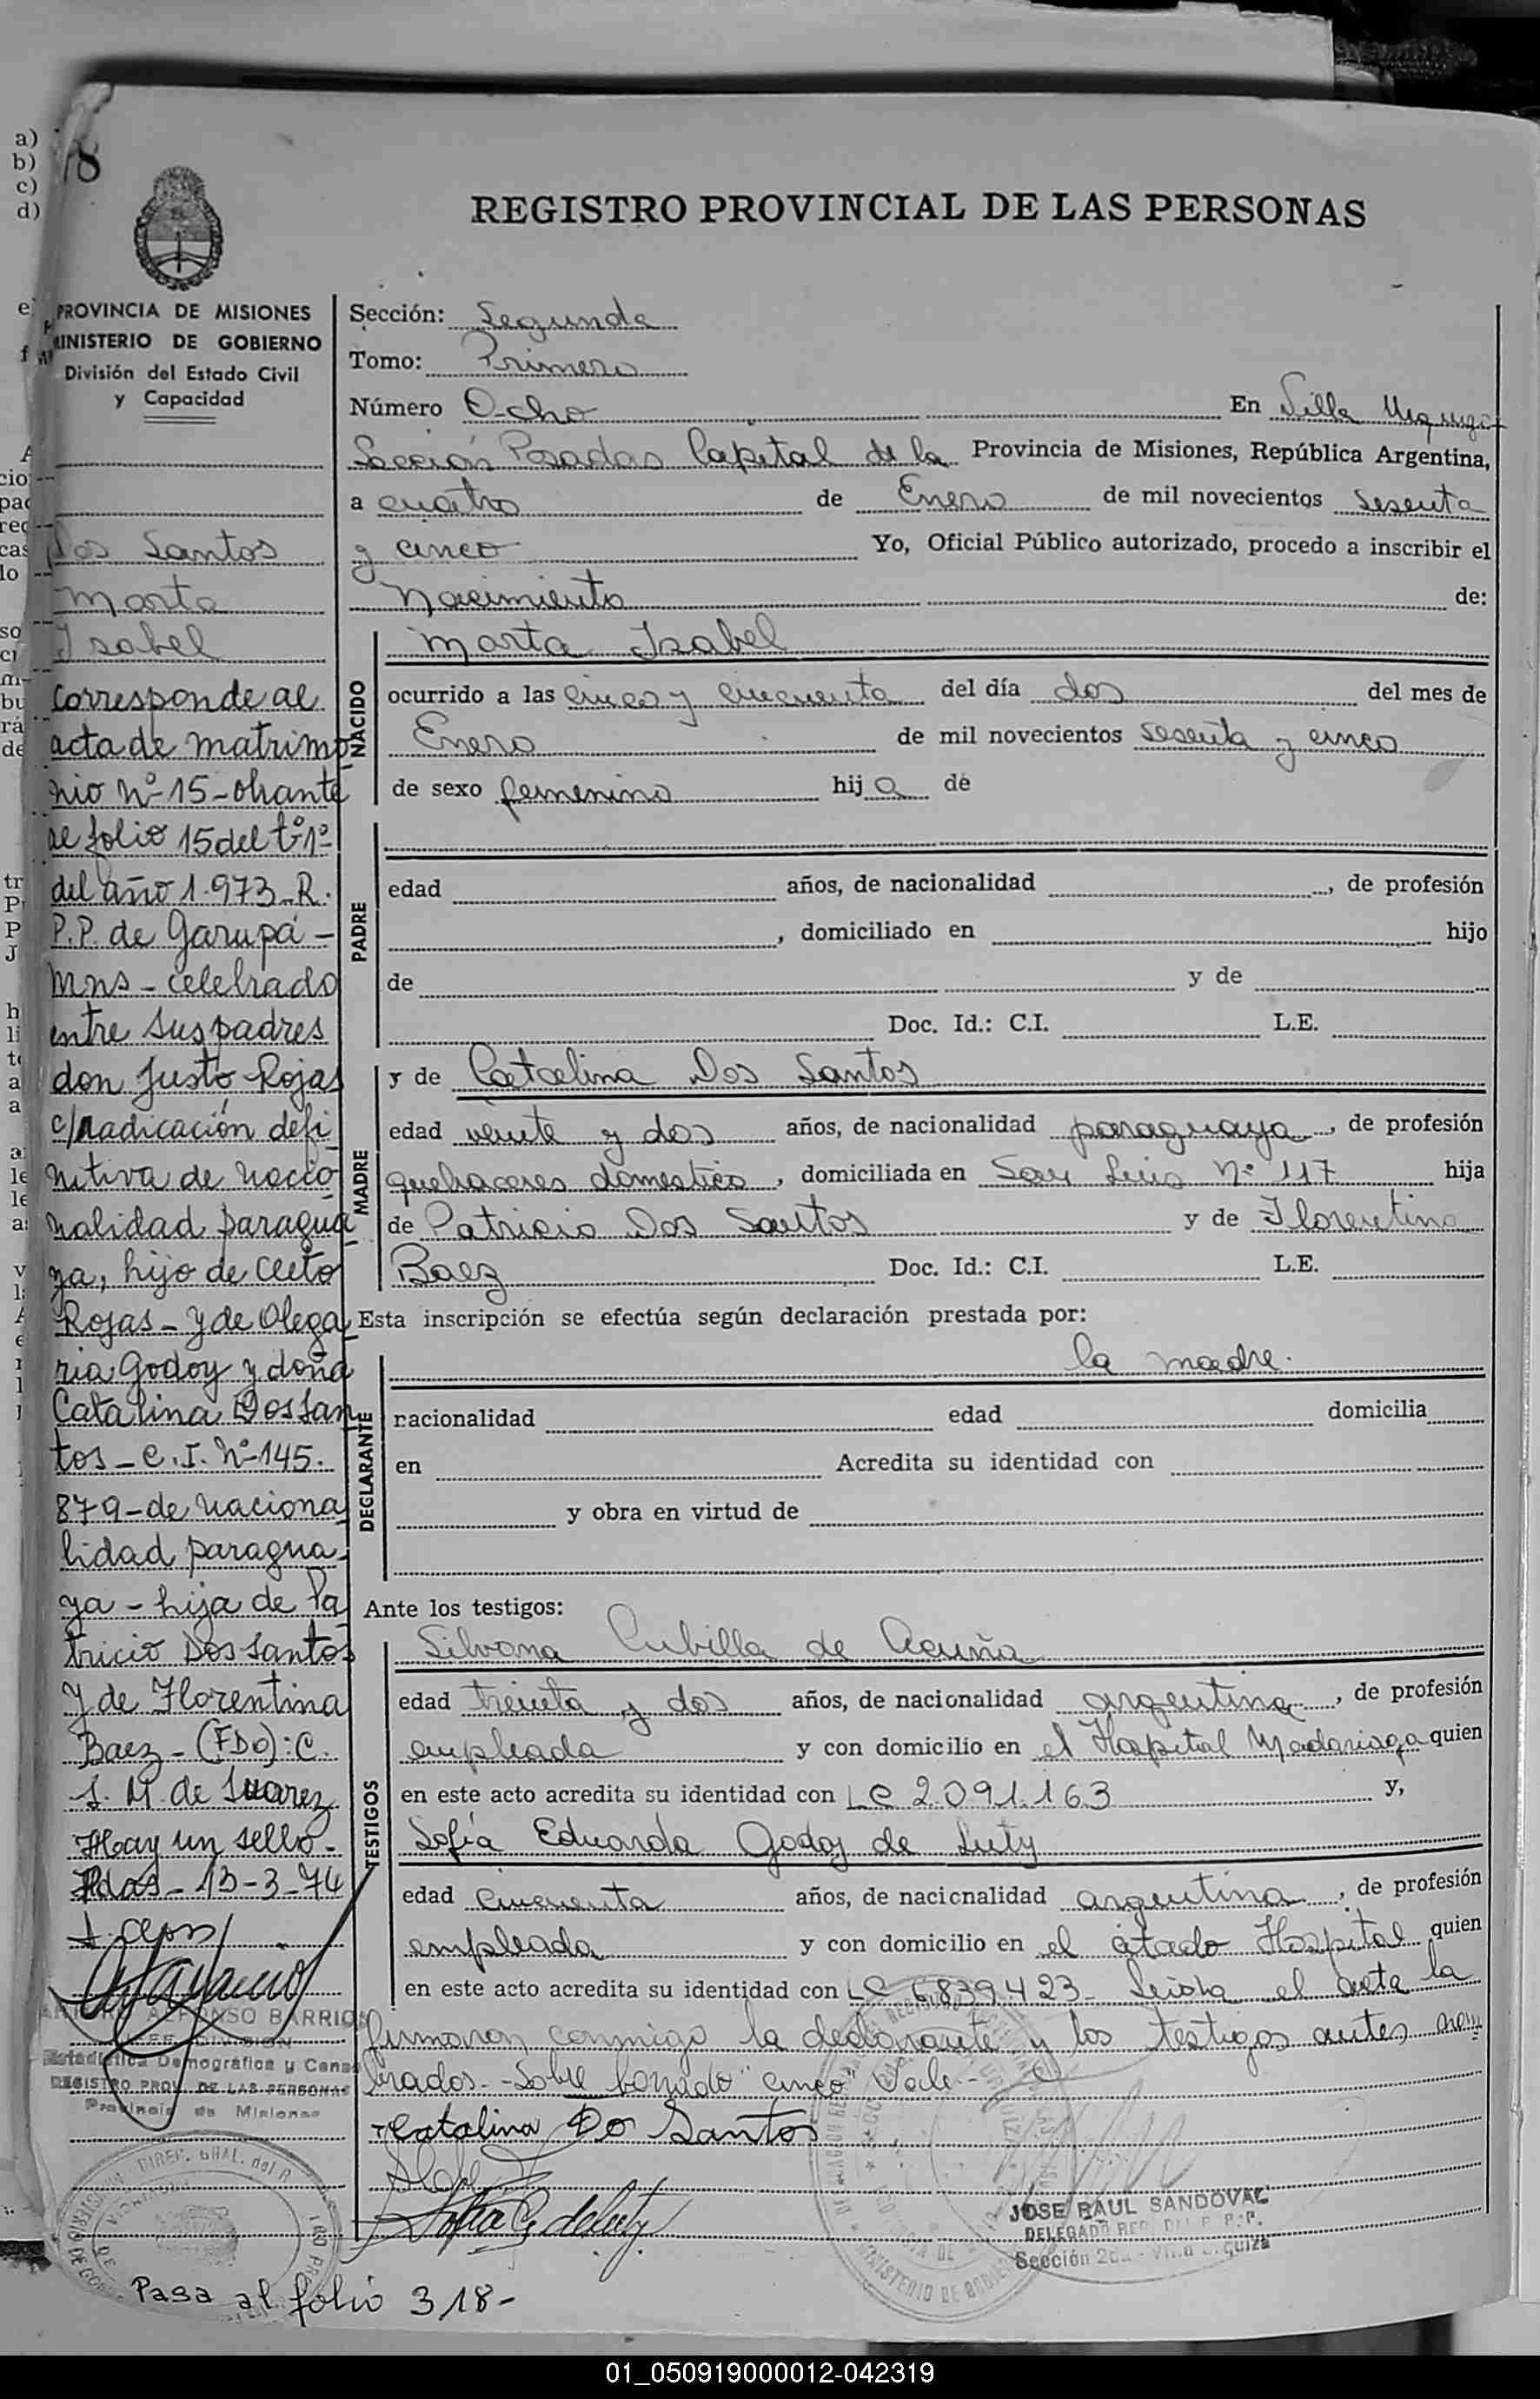 a)
b)
c)
d)
8
REGISTRO PROVINCIAL DE LAS PERSONAS
PROVINCIA DE MISIONES
MINISTERIO DE GOBIERNO
División del Estado Civil
y Capacidad
Dos Santos
Marta
Isabel
Corresponde al
acta de matrimo
nio Nº 15 - obrante
al folio 15 del tº 1º
del año 1.973 - R.
P.P. de Garupá -
Mns - celebrado
entre sus padres
don Justo Rojas
c/radicación defi
nitiva de nacio
nalidad paragua
ya, hijo de Cleto
Rojas - y de Olega
ria Godoy y doña
Catalina Dos San
tos - C.I. Nº 145.
879 - de naciona
lidad paragua
ya - hija de Pa
tricio Dos Santos
y de Florentina
Baez - (FDO): C.
J. M. de Suarez
Hay un sello -
Pdas - 13-3-74
ALFONSO BARRIOS
JEFE DIVISION
Estadística Demográfica y Censo
REGISTRO PROV. DE LAS PERSONAS
Provincia de Misiones
Sección: Segunda
Tomo: Primero
Número Ocho En Villa Urquiza
Sección Posadas Capital de la Provincia de Misiones, República Argentina,
a cuatro de Enero de mil novecientos sesenta
y cinco Yo, Oficial Público autorizado, procedo a inscribir el
Nacimiento de:
NACIDO
Marta Isabel
ocurrido a las cinco y cincuenta del día dos del mes de
Enero de mil novecientos sesenta y cinco
de sexo femenino hija de
PADRE
edad años, de nacionalidad , de profesión
, domiciliado en hijo
de y de
Doc. Id.: C.I. L.E.
MADRE
y de Catalina Dos Santos
edad veinte y dos años, de nacionalidad paraguaya, de profesión
quehaceres domestico, domiciliada en San Luis Nº 117 hija
de Patricio Dos Santos y de Florentina
Baez Doc. Id.: C.I. L.E.
Esta inscripción se efectúa según declaración prestada por:
la madre.
DECLARANTE
nacionalidad edad domicilia
en Acredita su identidad con
y obra en virtud de
Ante los testigos:
TESTIGOS
Silvana Cubilla de Acuña
edad treinta y dos años, de nacionalidad argentina, de profesión
empleada y con domicilio en el Hospital Madariaga quien
en este acto acredita su identidad con LC 2.091.163 y,
Sofía Eduarda Godoy de Luty
edad cincuenta años, de nacionalidad argentina, de profesión
empleada y con domicilio en el citado Hospital quien
en este acto acredita su identidad con LC 6839423 - Leida el acta la
firmaron conmigo la declarante y los testigos antes nom
brados. - Sobre borrado "cinco" Vale -
Catalina Do Santos
Sofia G de Luty
JOSE RAUL SANDOVAL
DELEGADO REG. DEL R. P. P.
Sección 2da - Villa Urquiza
Pasa al folio 318-
01_050919000012-042319